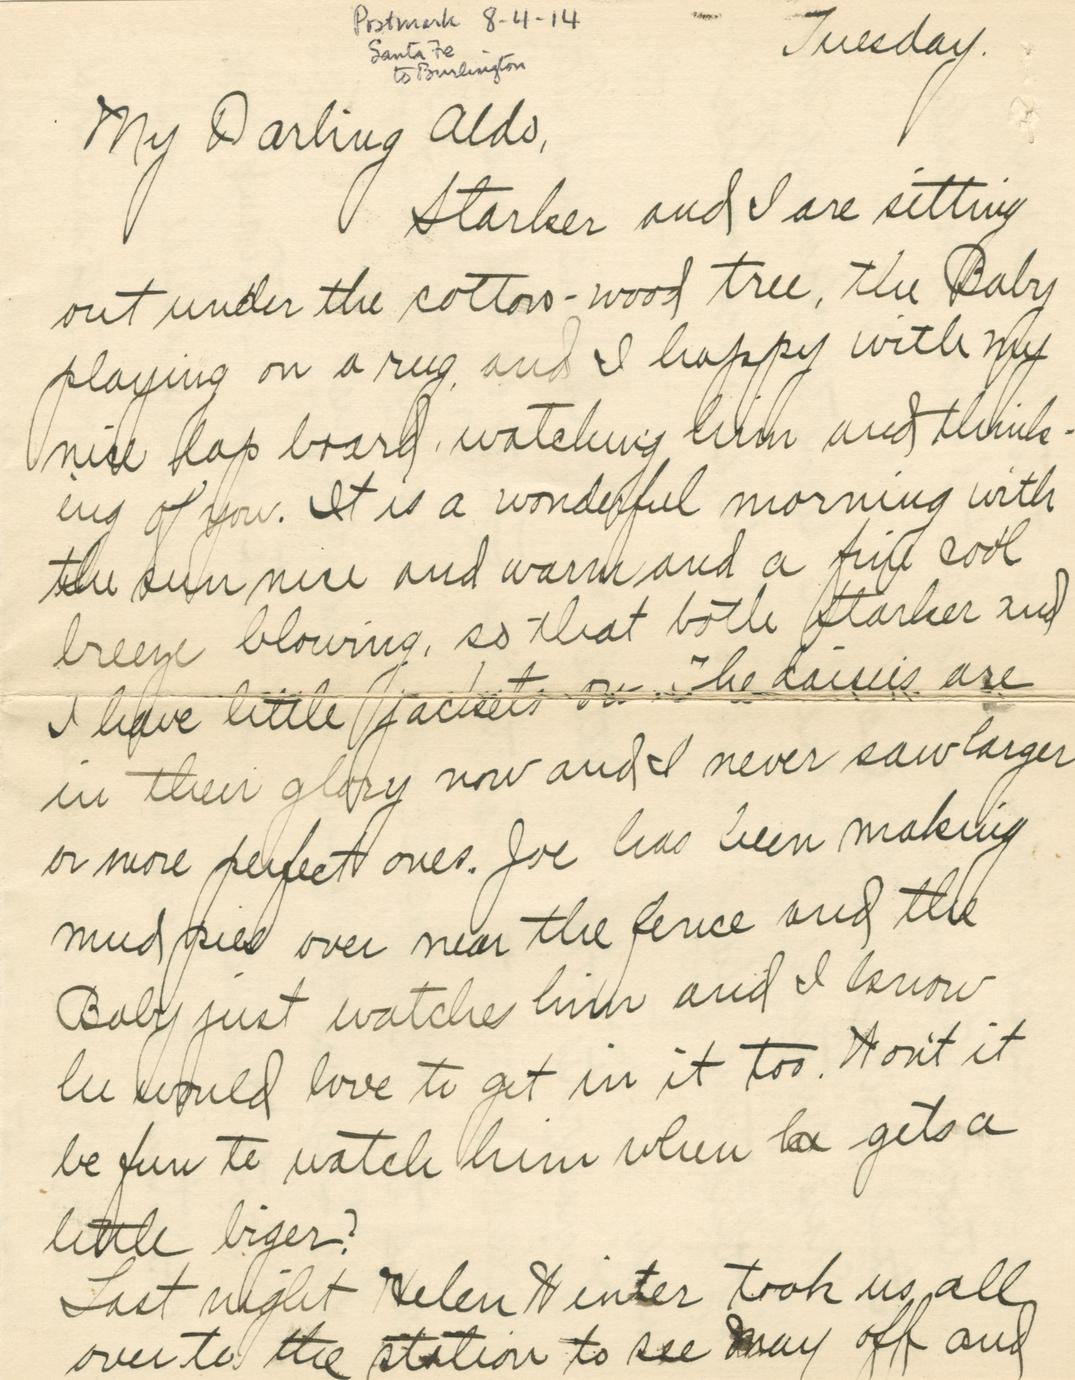 Postmark 8-4-14
Santa Fe
to Burlington
Tuesday.
My Darling Aldo,
Starker and I are sitting
out under the cotton-wood tree, the Baby
playing on a rug, and I happy with my
nice lap board, watching him and think-
ing of you. It is a wonderful morning with
the sun nice and warm and a fine cool
breeze blowing, so that both Starker and
I have little jackets on. The daisies are
in their glory now and I never saw larger
or more perfect ones. Joe has been making
mud pies over near the fence and the
Baby just watches him and I know
he would love to get in it too. Won't it
be fun to watch him when he gets a
little biger?
Last night Helen Winter took us all
over to the station to see May off and